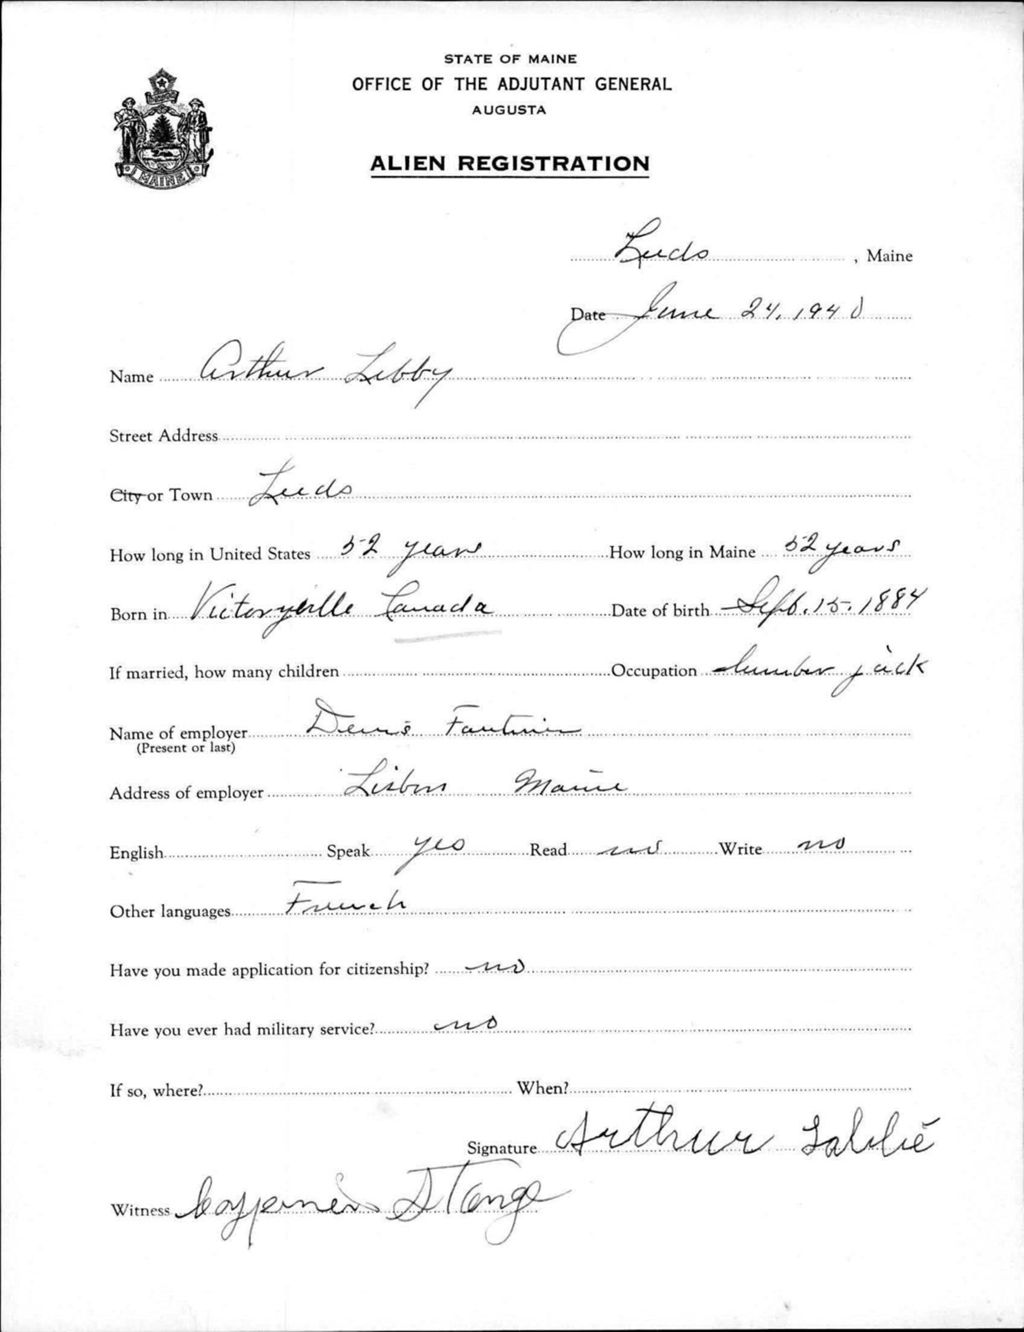 STATE OF MAINE
OFFICE OF THE ADJUTANT GENERAL
AUGUSTA
MAINE
ALIEN REGISTRATION
Leeds, Maine
Date June 24, 1940
Name Arthur Libby
Street Address
City or Town Leeds
How long in United States 52 years How long in Maine 52 years
Born in Victoryville Canada Date of birth Sept. 15, 1884
If married, how many children Occupation lumber jack
Name of employer Denis
(Present or last)
Address of employer Lisbon Maine
English Speak yes Read no Write no
Other languages French
Have you made application for citizenship? no
Have you ever had military service? no
If so, where? When?
Signature Arthur Labbé
Witness